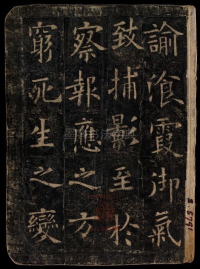 諭飡霞御氣
致捕影至於
察報應之方
窮死生之變